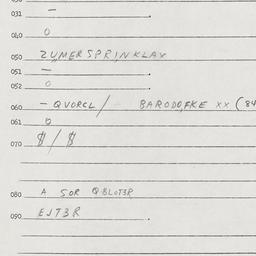 031 –
040 0
050 ZUMERSPRINKLAY
051 –
052 0
060 – QVORCL / BARODOFKE XX (84
061 0
070 $ / $
080 A SOR QBLOT3R
090 EJT3R